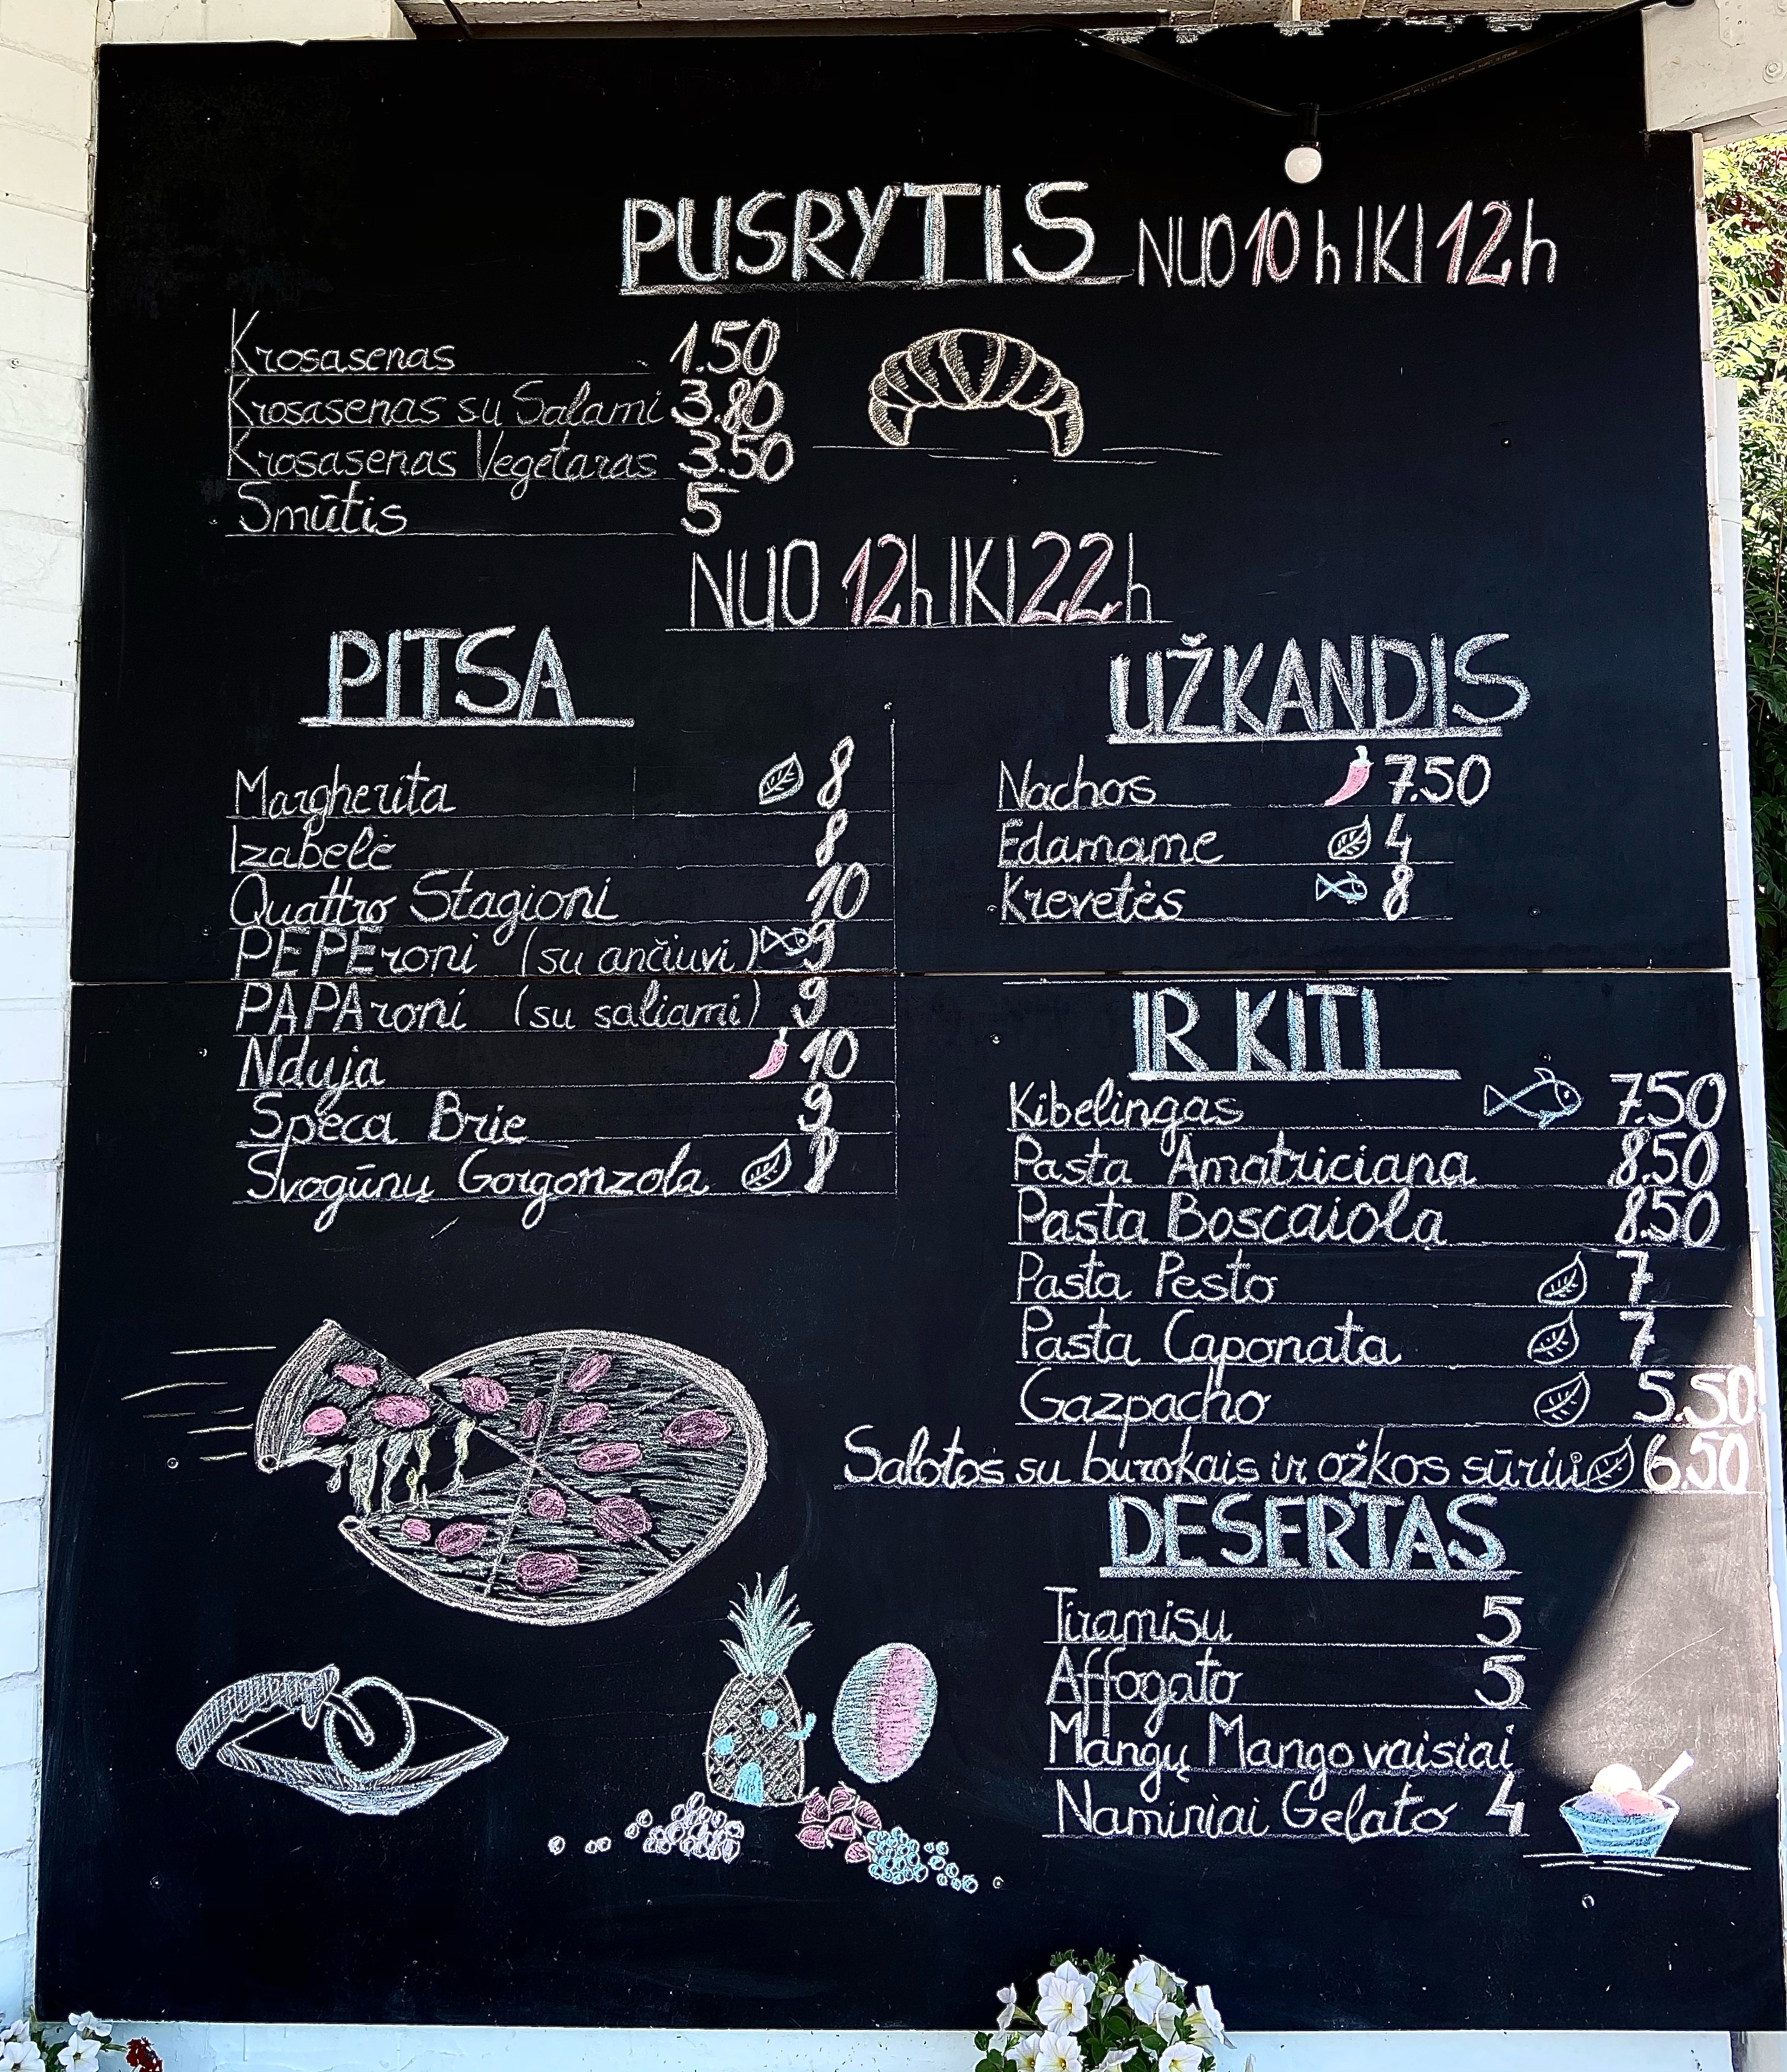 PUSRYTIS NUO 10h IKI 12h
Krosasenas 1.50
Krosasenas su Salami 3.80
Krosasenas Vegetaras 3.50
Smūtis 5
NUO 12h IKI 22h
PITSA
Margherita 8
Izabelė 8
Quattro Stagioni 10
PEPEroni (su ančiuvi) 9
PAPAroni (su saliami) 9
Nduja 10
Speca Brie 9
Svogūnų Gorgonzola 8
UŽKANDIS
Nachos 7.50
Edamame 4
Krevetės 8
IR KITI
Kibelingas 7.50
Pasta Amatriciana 8.50
Pasta Boscaiola 8.50
Pasta Pesto 7
Pasta Caponata 7
Gazpacho 5.50
Salotos su burokais ir ožkos sūriu 6.50
DESERTAS
Tiramisu 5
Affogato 5
Mangų Mango vaisiai
Naminiai Gelato 4